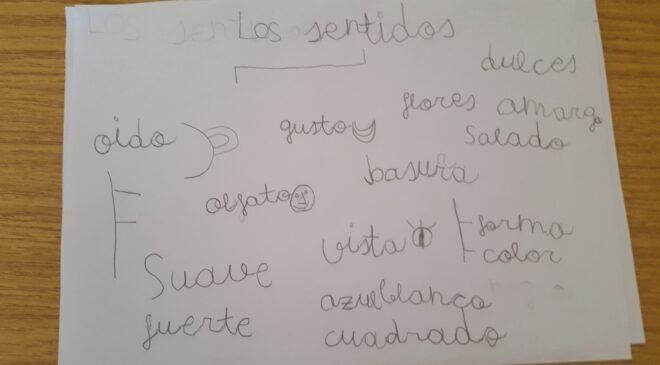 Los sentidos
dulces
flores amargo
oido gusto salado
basura
olfato
vista forma
color
Suave
azul blanco
fuerte cuadrado